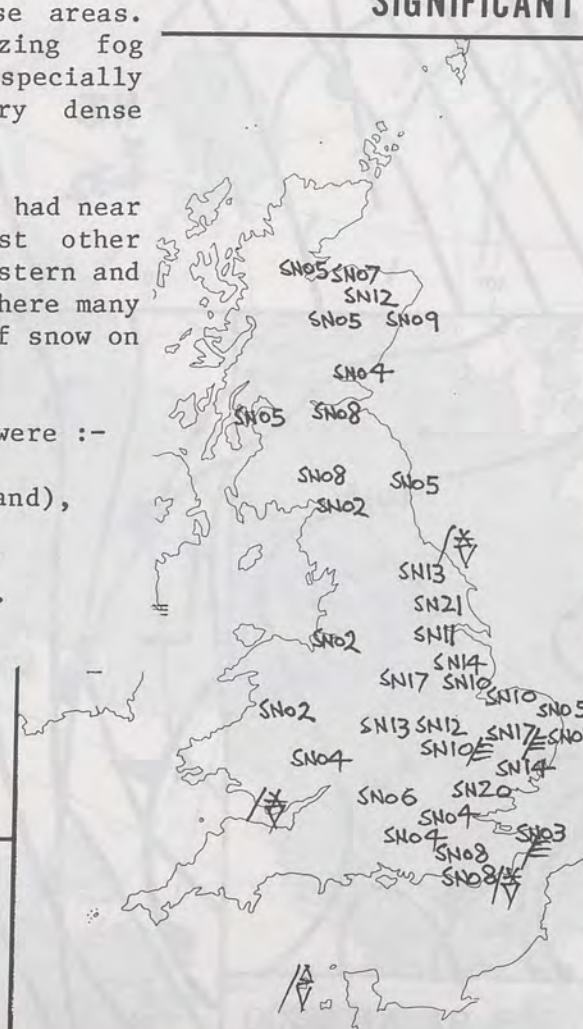 SIGNIFICANT
se areas.
zing fog
specially
ry dense
had near
st other
stern and
here many
f snow on
were :-
and),
SN05 SN07
SN12
SN05 SN09
SN04
SN05 SN08
SN08 SN05
SN02
SN13
SN21
SN11
SN02
SN14
SN17 SN10
SN10
SN05
SN02
SN13 SN12 SN17
SN10
SN04
SN14
SN06 SN20
SN04
SN04 SN03
SN08
SN08